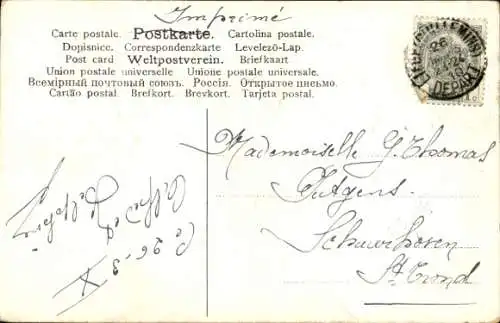 Imprimé
Carte postale. Postkarte. Cartolina postale.
Dopisnice. Correspondenzkarte. Levelező-Lap.
Post card Weltpostverein. Briefkaart
Union postale universelle Unione postale universale.
Всемірный почтовый союзъ. Россія. Открытое письмо.
Cartão postal. Brefkort. Brevkort. Tarjeta postal.
DEPART
Mademoiselle G. Thomas
Rutgens.
Schuurhoven
St Trond
Alfred
26.3
X